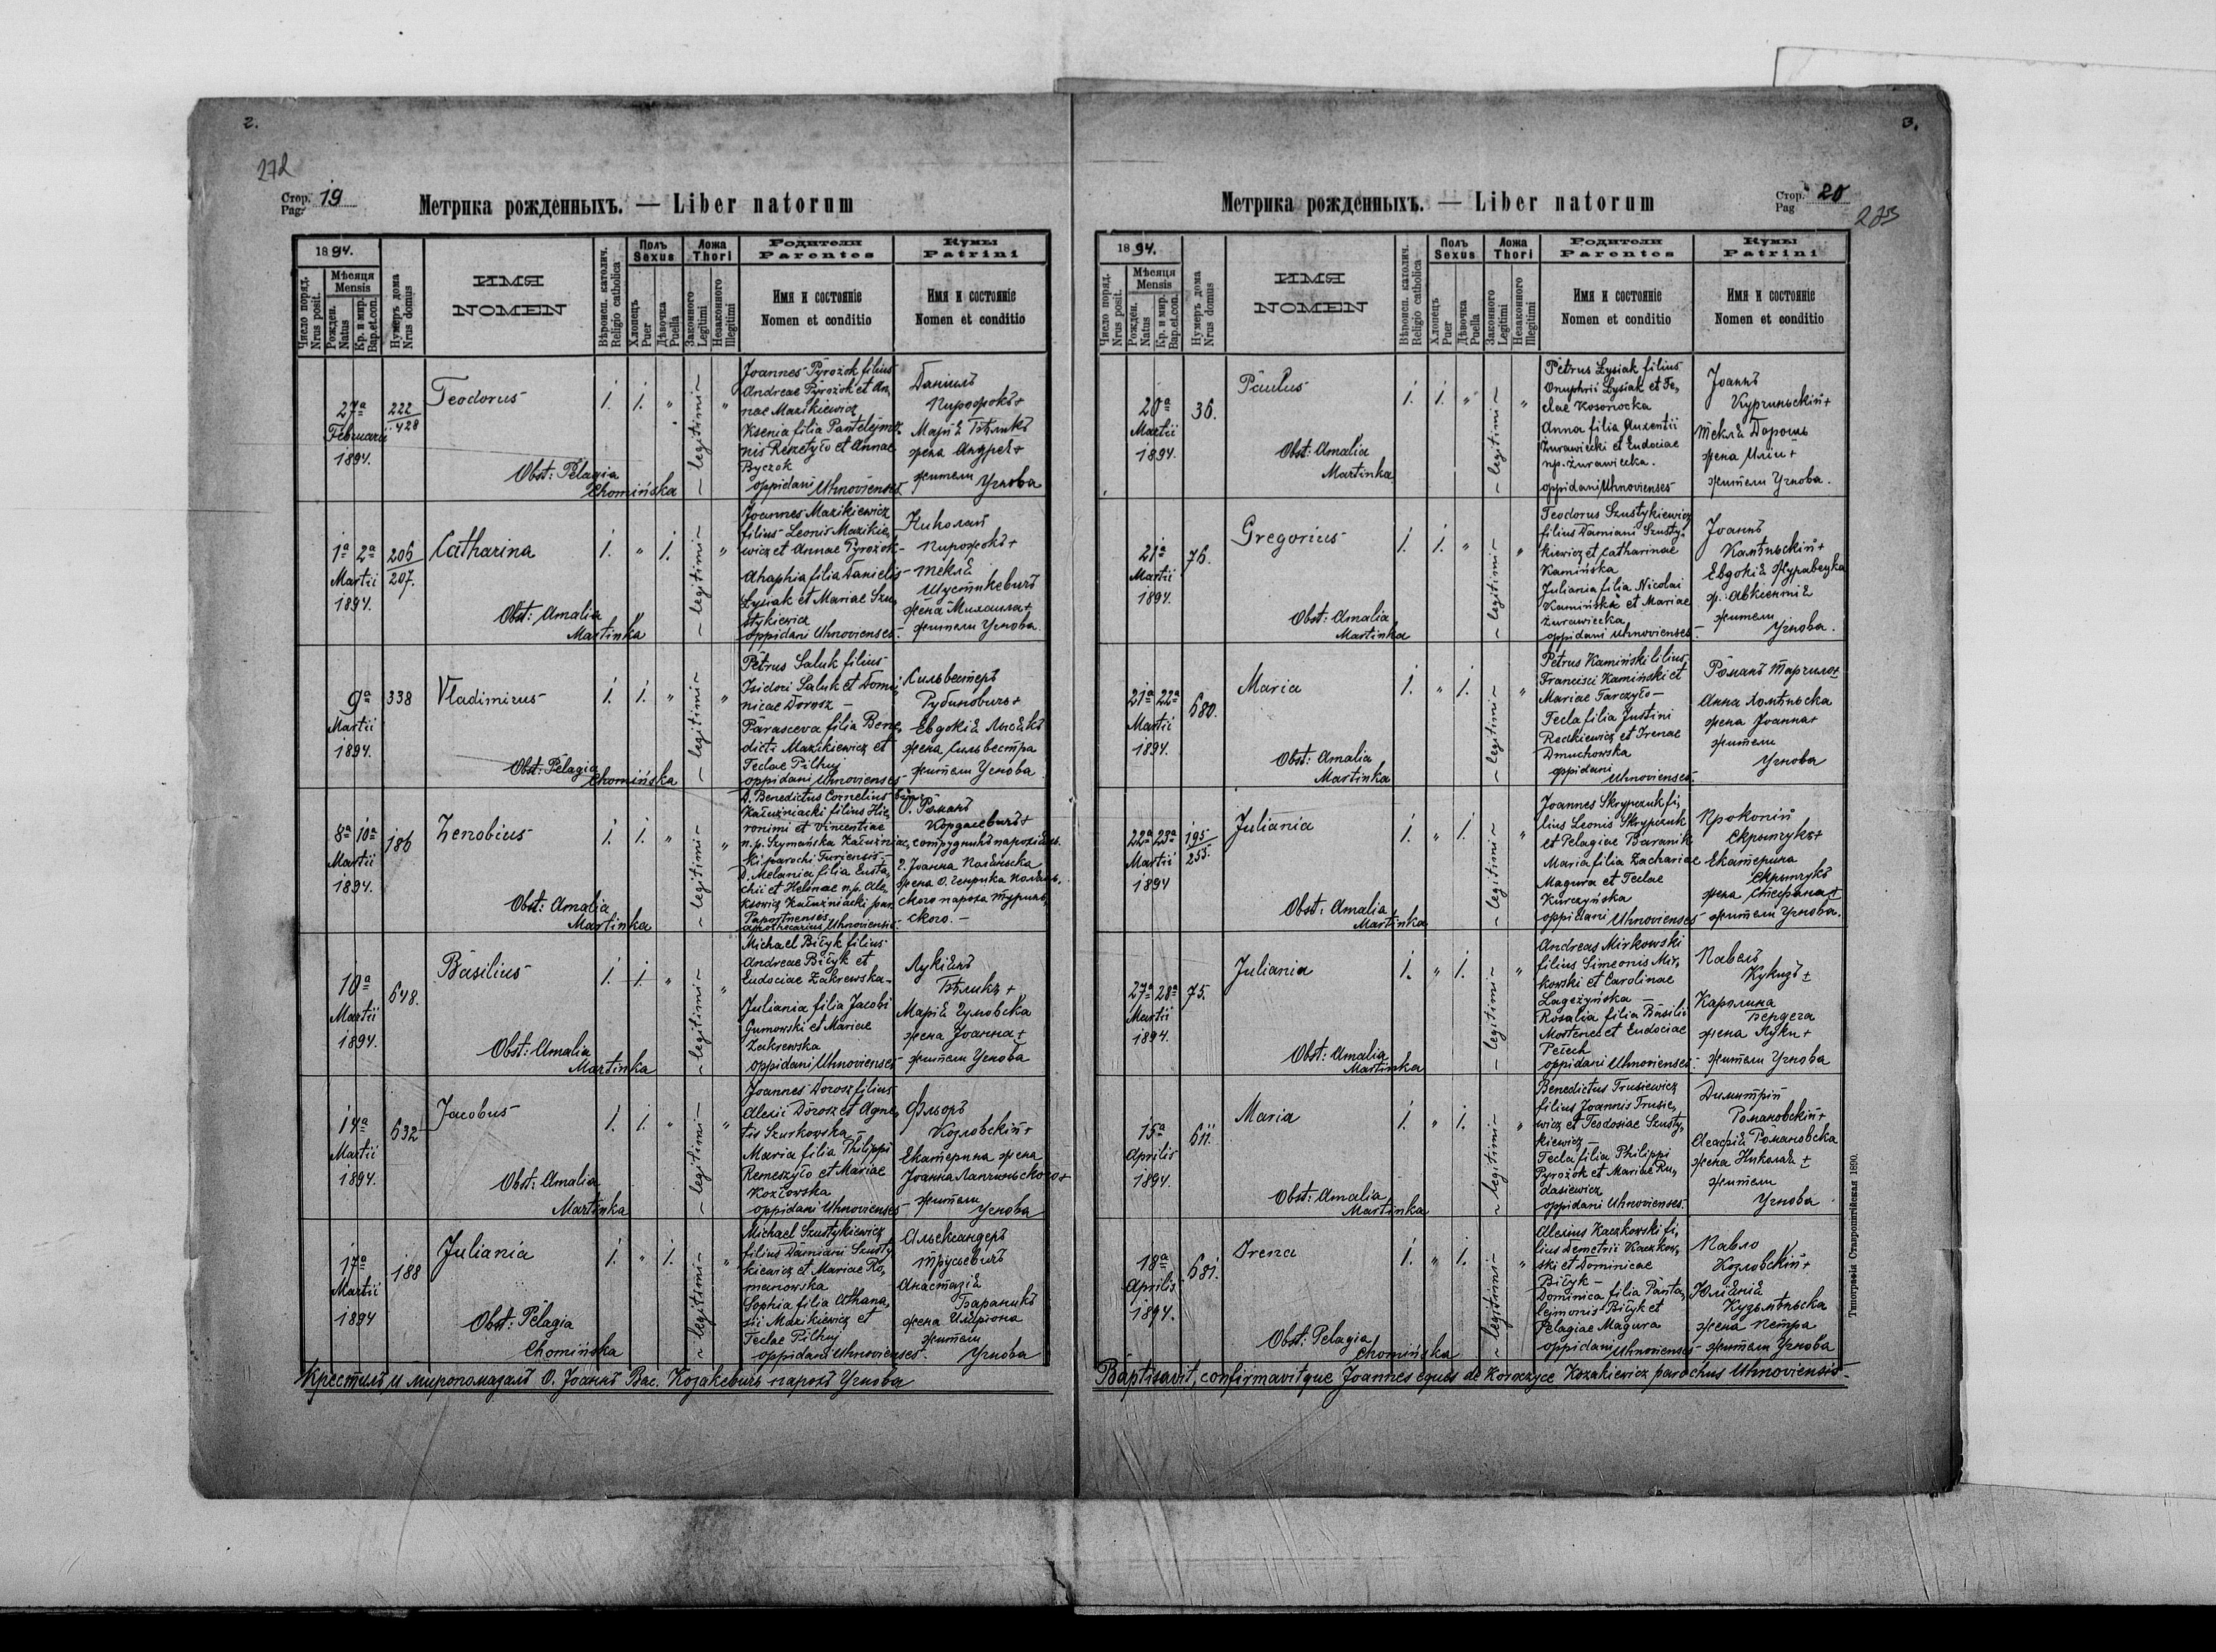 2.
272
Стор. Pag. 19
Метрика рожденныхъ. — Liber natorum
1894.
Число поряд. Nrus posit.
Мѣсяця Mensis
Рожден. Natus
Кр. и мир. Bap. et con.
Нумеръ дома Nrus domus
ИМЯ
NOMEN
Вѣроисп. католич. Religio catholica
Полъ Sexus
Хлопецъ Puer
Дѣвочка Puella
Ложа Thori
Законного Legitimi
Незаконного Illegitimi
Родители Parentes
Имя и состояніе
Nomen et conditio
Кумы Patrini
Имя и состояніе
Nomen et conditio
27ª
Februarii
1894.
222/428
Teodorus
Obst: Pelagia
Chomińska
1. 1. „ — legitimi — „
Joannes Pyrożok filius
Andreae Pyrożok et An,
nae Mazikiewicz
Ksenia filia Pantelejmo,
nis Reszetyło et Annae
Byczok
oppidani Uhnovienses
Даніилъ
Пирожокъ+
Марія Бѣликъ
жена Андрея+
жители Угнова
1ª 2ª
Martii
1894.
206/207.
Catharina
Obst: Amalia
Martinka
1. „ 1. — legitimi — „
Joannes Mazikiewicz
filius Leonis Mazikie,
wicz et Annae Pyrożok-
Ahaphia filia Danielis
Łysiak et Mariae Szu,
stykiewicz
oppidani Uhnovienses.
Николай
Пирожокъ+
Текля
Шустикевичъ
жена Михаила+
жители Угнова.
9ª
Martii
1894.
338
Vladimirus
Obst: Pelagia
Chomińska
1. 1. „ — legitimi — „
Petrus Saluk filius
Isidori Saluk et Domi,
nicae Dorosz —
Parasceva filia Bene,
dicti Mazikiewicz et
Teclae Pilhuj
oppidani Uhnovienses
Сильвестеръ
Рубиновичъ+
Евдокія Лисякъ
жена Сильвестра
жители Угнова
8ª 10ª
Martii
1894.
186
Zenobius
Obst: Amalia
Martinka
1. 1. „ — legitimi — „
D. Benedictus Cornelius
Kałużniacki filius Hie,
ronimi et Vincentiae
n.p. Szymańska Kałużniac,
ki parochi Turiensis —
D. Melania filia Eusta,
chii et Helenae n.p. Ale,
ksowicz Kałużniacki par.
Paportnensis,
apothecarius Uhnoviensis.
О. Романъ
Кордасевичъ+
сотрудникъ парохіяльн.
Г. Іоанна Полянска
жена О. Генрика Полянь,
ского пароха Туринь,
ского. —
10ª
Martii
1894.
648.
Basilius
Obst: Amalia
Martinka
1. 1. „ — legitimi — „
Michael Biłyk filius
Andreae Biłyk et
Eudociae Zakrewska-
Juliania filia Jacobi
Gumowski et Mariae
Zakrewska
oppidani Uhnovienses
Лукіянъ
Бѣликъ+
Марія Гумовска
жена Іоанна+
жители Угнова
14ª
Martii
1894.
632
Jacobus
Obst: Amalia
Martinka
1. 1. „ — legitimi — „
Joannes Dorosz filius
Alexii Dorosz et Agne,
tis Szurkowska —
Maria filia Philippi
Remeszyło et Mariae
Kozłowska
oppidani Uhnovienses
Фльоръ
Козловскій+
Екатерина жена
Іоанна Лапчиньского+
жители
Угнова
17ª
Martii
1894
188
Juliania
Obst: Pelagia
Chomińska
1. „ 1. — legitimi — „
Michael Szustykiewicz
filius Damiani Szusty
kiewicz et Mariae Ro,
manowska
Sophia filia Athana,
sii Mazikiewicz et
Teclae Pilhuj
oppidani Uhnovienses
Александеръ
Трусевичъ
Анастазія
Бараникъ
жена Иляріона
жители
Угнова
Крестилъ и миропомазалъ О. Іоаннъ Вас. Козакевичъ парохъ Угнова
3.
Стор. Pag 20
273
Метрика рожденныхъ. — Liber natorum
1894.
Число поряд. Nrus posit.
Мѣсяця Mensis
Рожден. Natus
Кр. и мир. Bap. et con.
Нумеръ дома Nrus domus
ИМЯ
NOMEN
Вѣроисп. католич. Religio catholica
Полъ Sexus
Хлопецъ Puer
Дѣвочка Puella
Ложа Thori
Законного Legitimi
Незаконного Illegitimi
Родители Parentes
Имя и состояніе
Nomen et conditio
Кумы Patrini
Имя и состояніе
Nomen et conditio
20ª
Martii
1894.
36.
Paulus
Obst: Amalia
Martinka
1. 1. „ — legitimi — „
Petrus Łysiak filius
Onuphrii Łysiak et Te,
clae Kosonocka
Anna filia Auxentii
Żurawiecki et Eudociae
n.p. Żurawiecka.
oppidani Uhnovienses
Іоаннъ
Курчиньскій+
Текля Дорошъ
жена Иліи+
жители Угнова.
21ª
Martii
1894.
76.
Gregorius
Obst: Amalia
Martinka
1. 1. „ — legitimi — „
Teodorus Szustykiewicz
filius Damiani Szusty,
kiewicz et Catharinae
Kamińska
Juliania filia Nicolai
Kamińska et Mariae
Żurawiecka
oppidani Uhnovienses.
Іоаннъ
Камѣньскій+
Евдокія Журавецка
ж. Авксентія
жители
Угнова.
21ª 22ª
Martii
1894.
680.
Maria
Obst: Amalia
Martinka
1. „ 1. — legitimi — „
Petrus Kamiński filius
Francisci Kamiński et
Mariae Tarczyło —
Tecla filia Justini
Redkiewicz et Irenae
Dmuchowska
oppidani
Uhnovienses.
Романъ Тарчило+
Анна Хомѣньска
жена Іоанна+
жители
Угнова
22ª 23ª
Martii
1894
195/255.
Juliania
Obst: Amalia
Martinka
1. „ 1. — legitimi — „
Joannes Skrypczuk fi,
lius Leonis Skrypczuk
et Pelagiae Baranik
Maria filia Zachariae
Magura et Teclae
Kurczyńska
oppidani Uhnovienses
Прокопій
Скрыпчукъ+
Екатерина
Скрыпчукъ
жена Стефана+
жители Угнова.
27ª 28ª
Martii
1894.
75.
Juliania
Obst: Amalia
Martinka
1. „ 1. — legitimi — „
Andreas Mirkowski
filius Simeonis Mir,
kowski et Carolinae
Łagożyńska —
Rosalia filia Basilii
Mostenec et Eudociae
Pełech
oppidani Uhnovienses.
Павелъ
Кукизъ+
Каролина
Бердега
жена Луки+
жители Угнова
15ª
Aprilis
1894.
611.
Maria
Obst: Amalia
Martinka
1. „ 1. — legitimi — „
Benedictus Trusiewicz
filius Joannis Trusie,
wicz et Teodosiae Szusty,
kiewicz —
Tecla filia Philippi
Pyrożok et Mariae Ru,
dasiewicz
oppidani Uhnovienses.
Димитрій
Романовскій+
Агафія Романовска
жена Николая+
жители
Угнова
18ª
Aprilis
1894.
681.
Irena
Obst: Pelagia
Chomińska
1. „ 1. — legitimi — „
Alexius Kaczkowski fi,
lius Demetrii Kaczkow,
ski et Dominicae
Biłyk —
Dominica filia Panta,
lejmonis Biłyk et
Pelagiae Magura
oppidani Uhnovienses
Павло
Козловскій+
Юліянія
Кузьмѣньска
жена Петра
жители Угнова
Baptisavit, confirmavitque Joannes eques de Koroczyce Kozakiewicz parochus Uhnoviensis
Типографія Ставропигійская 1890.